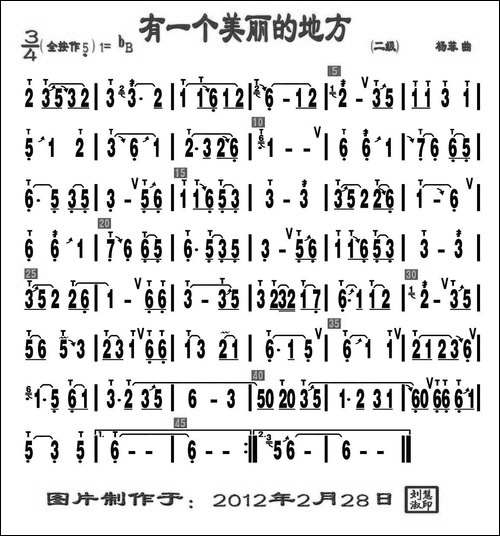 有一个美丽的地方
3/4 (全按作5) 1= bB (二级) 杨菲 曲
2 3532 | 3 3· 2 | 1 1612 | 6 - 12 | 2 - 35 | 11 3 1 |
5 1 2 | 3 6 1 | 2·326 | 1 - - | 6 6 1 | 76 65 |
6· 5 35 | 3 - 56 | 11653 | 3 - 3 | 35226 | 1 - 6 |
6 6 1 | 76 65 | 6·535 | 3 - 56 | 11653 | 3 - 3 |
352 26 | 1 - 66 | 3 - 35 | 3 23217 | 6·112 | 2 - 35 |
56 5·3 | 231 66 | 13 21 | 6 - 56 | 6 1 1 | 21236 |
1·5 61 | 2 3·5 | 6 - 3 | 502035 | 1·2 31 | 606661 |
5 3 5 | 1. 6 - - | 6 - - :| 2.3. 56 - | 6 - - |
图片制作于：2012年2月28日 刘慧淑印